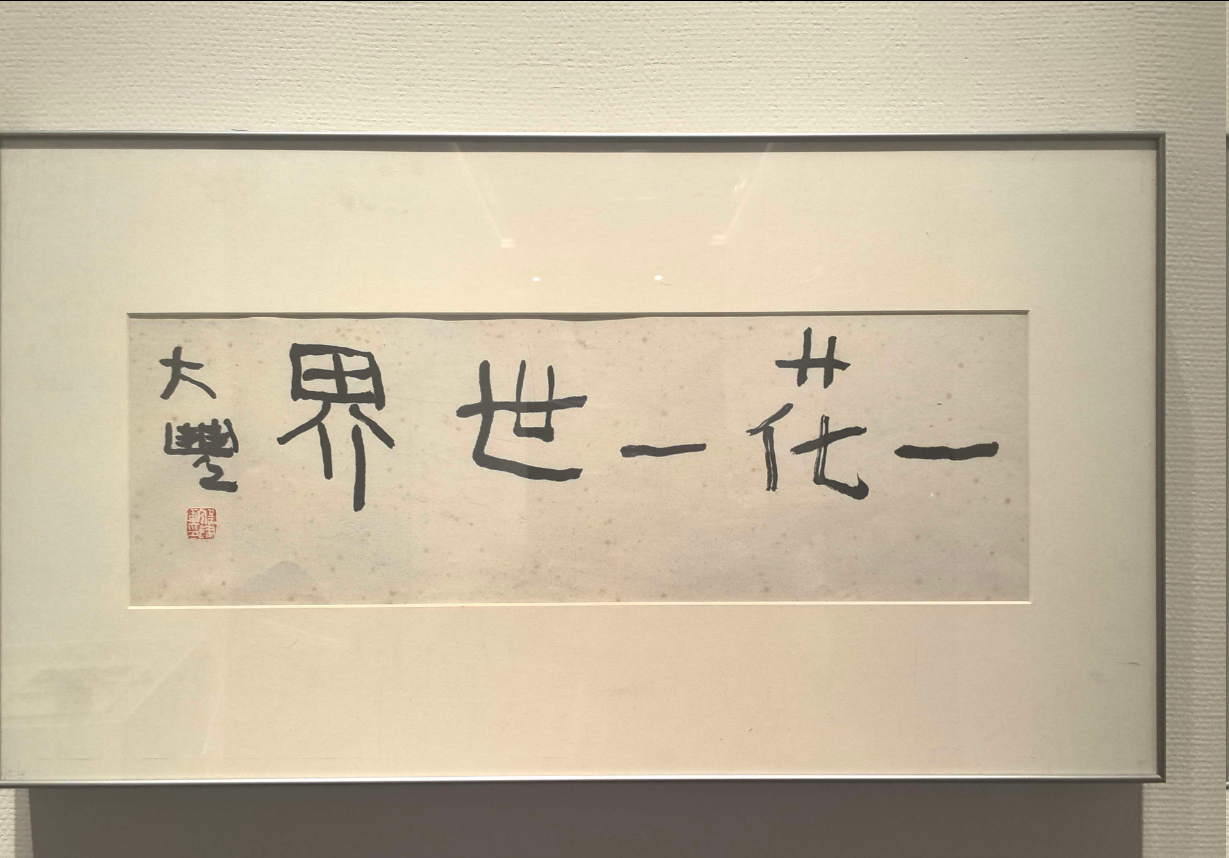 一花一世界
大豐